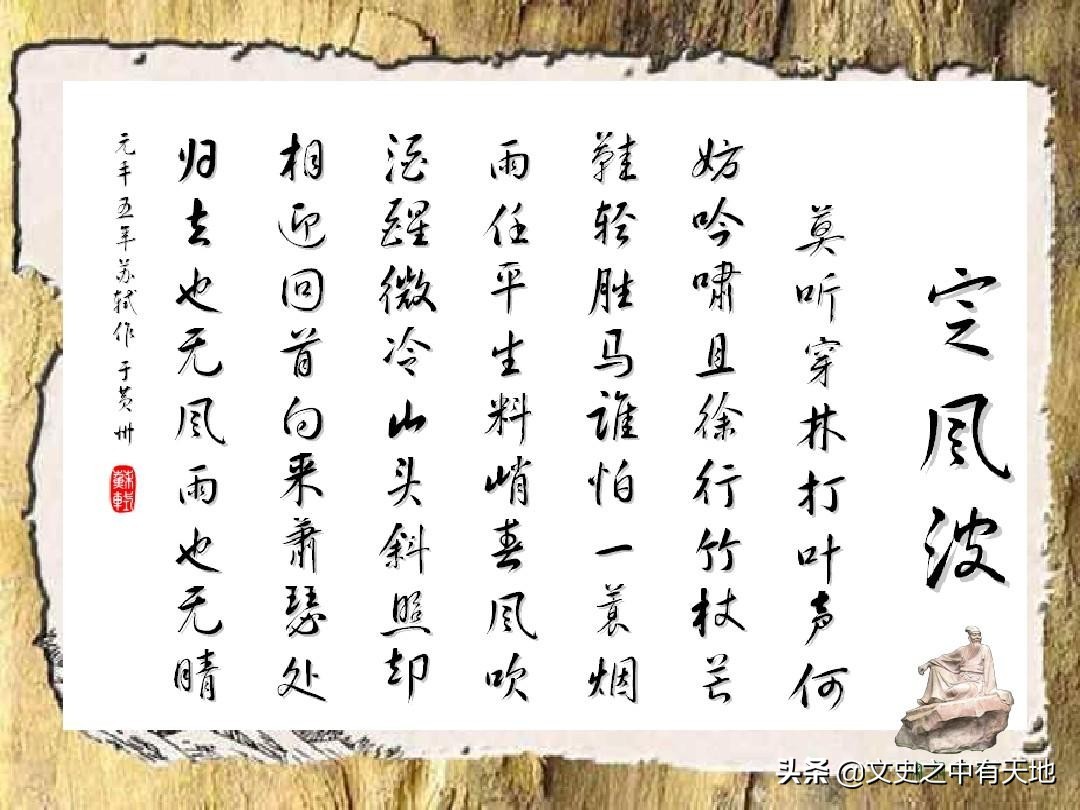 定风波
莫听穿林打叶声何
妨吟啸且徐行竹杖芒
鞋轻胜马谁怕一蓑烟
雨任平生料峭春风吹
酒醒微冷山头斜照却
相迎回首向来萧瑟处
归去也无风雨也无晴
元丰五年苏轼作于黄州
头条 @文史之中有天地